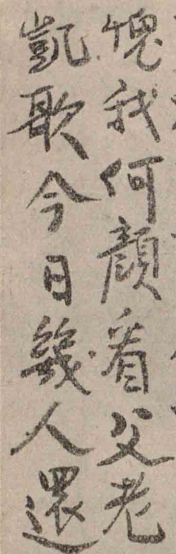 愧我何顔看父老
凱歌今日幾人還